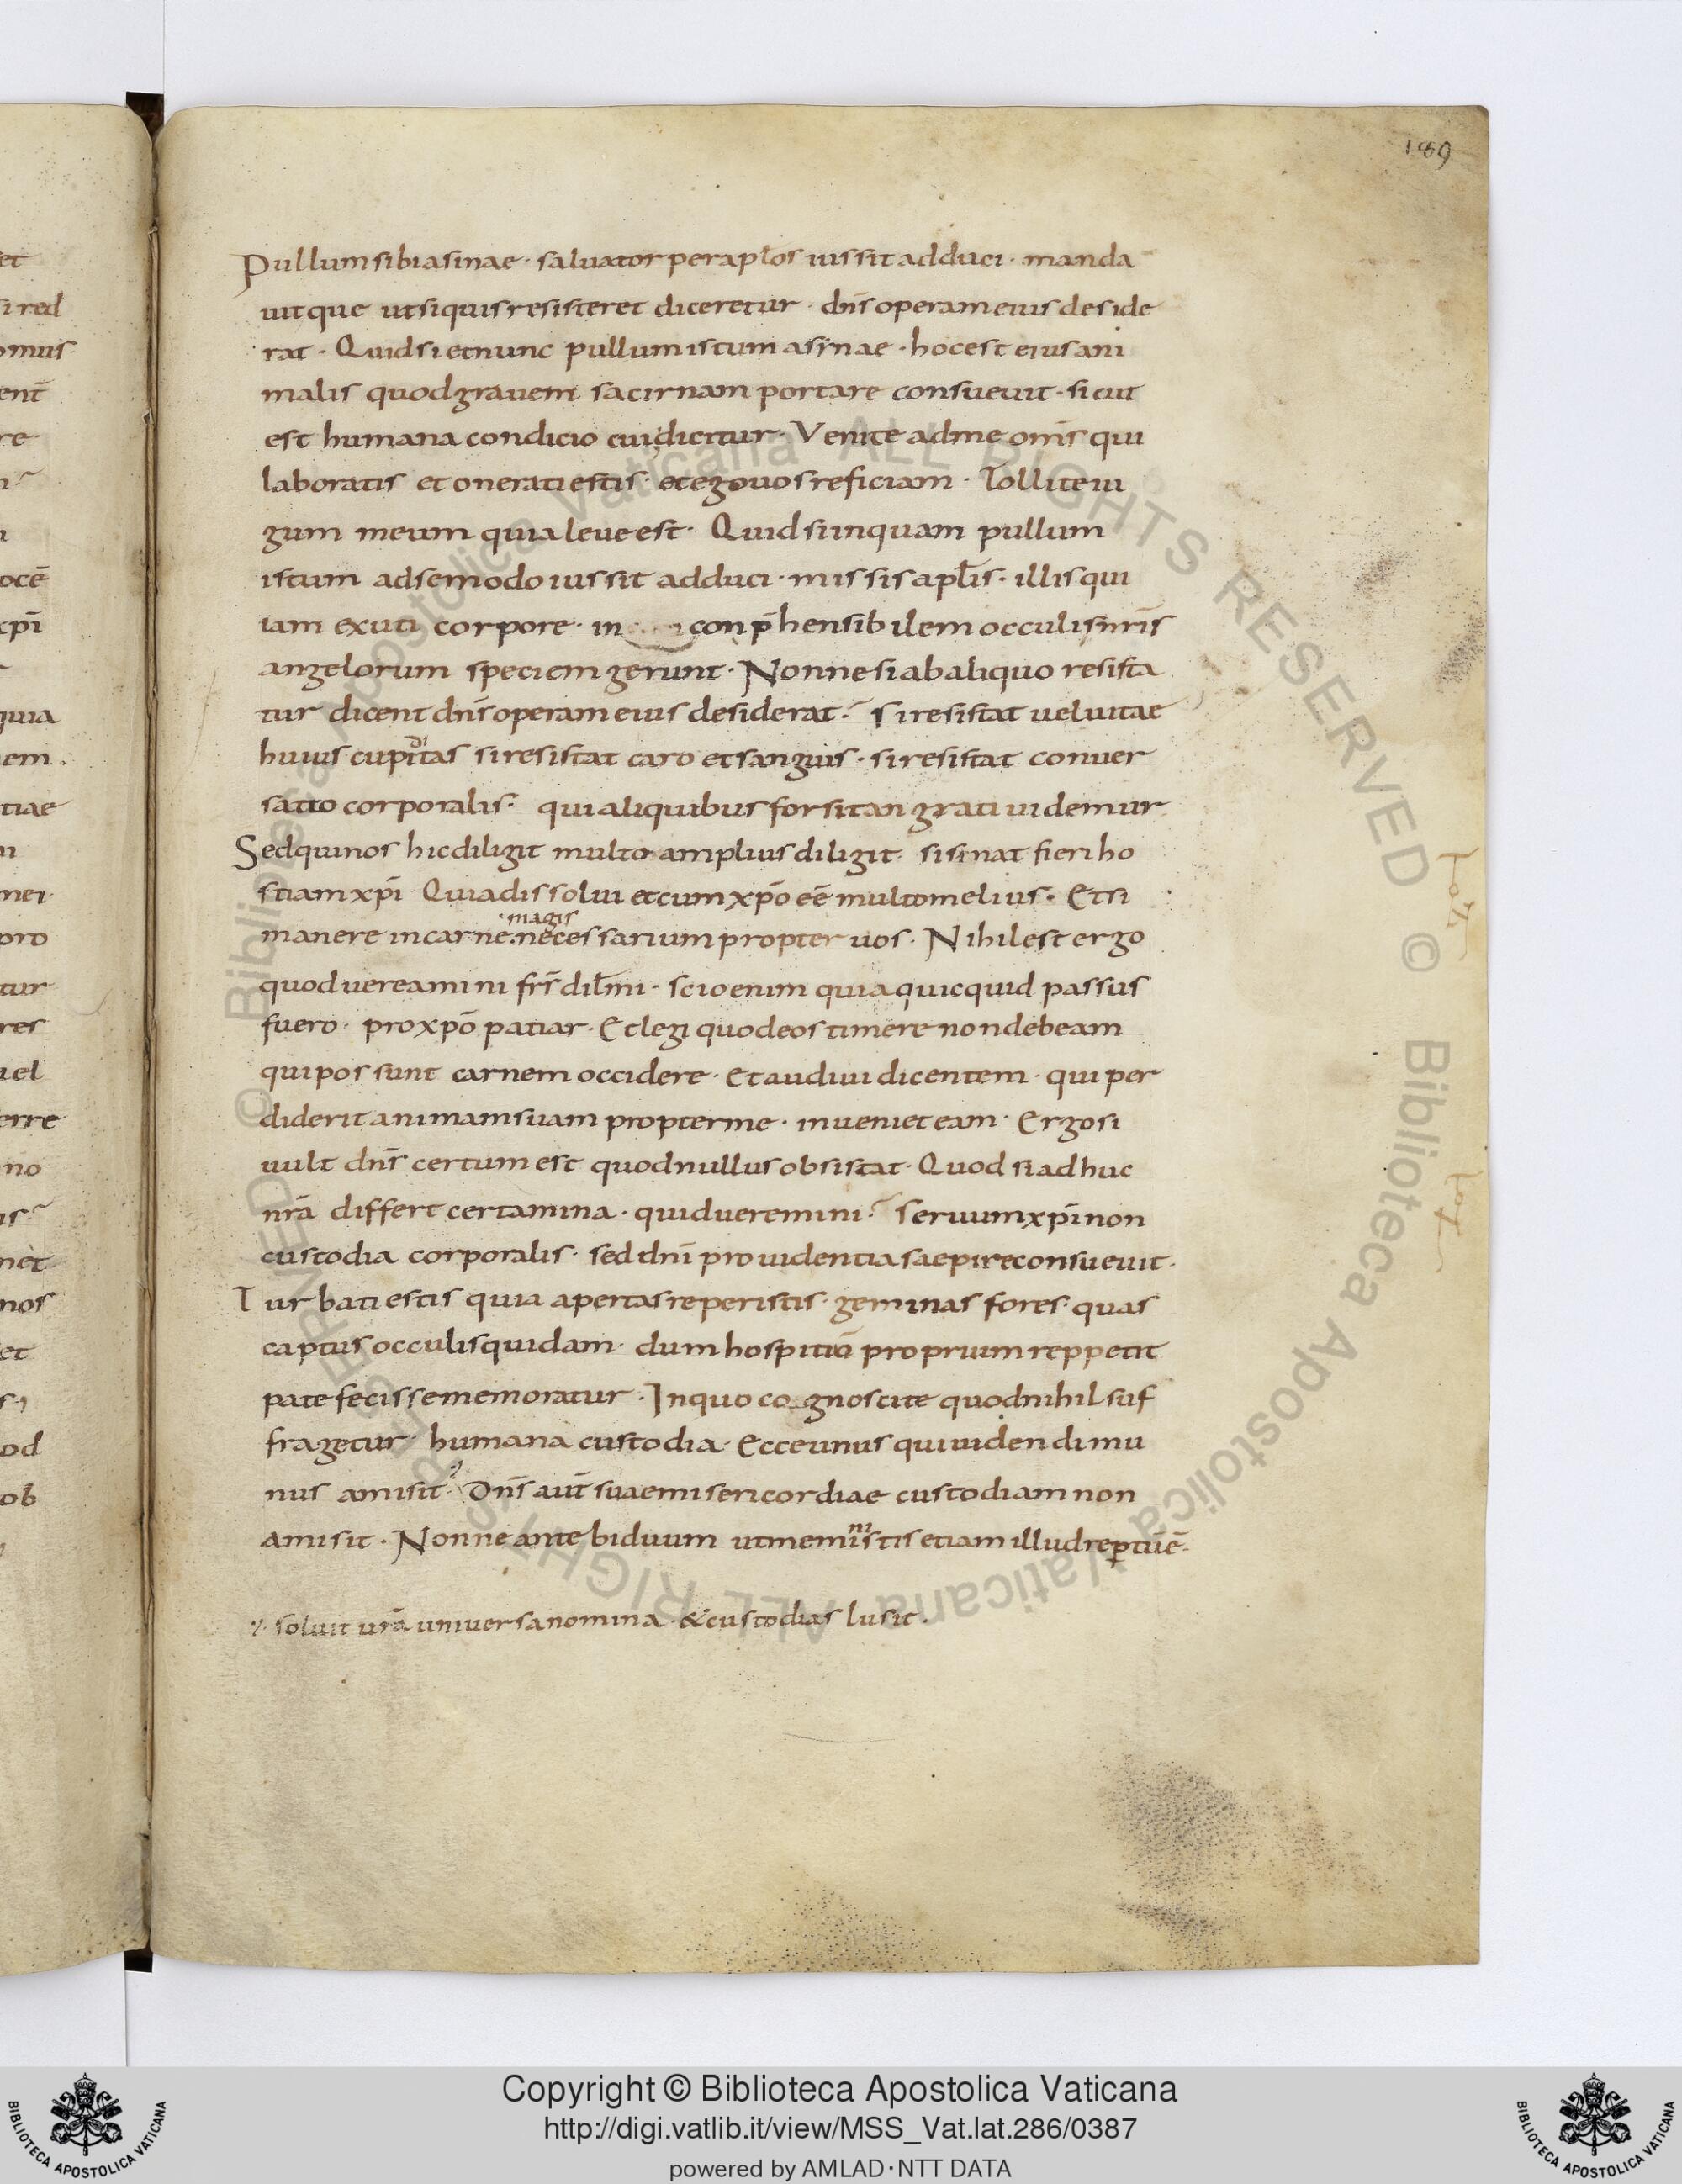 189
Pullum sibi asinae · saluator per aplos iussit adduci · manda
uitque ut siquis resisteret diceretur · dns operam eius deside
rat · Quid si et nunc pullum istum asinae · hoc est eius ani
malis quod grauem sacirnam portare consueuit · sicut
est humana condicio cui dicitur · Venite ad me omns qui
laboratis et onerati estis · et ego uos reficiam · Tollite iu
gum meum quia leue est · Quid si inquam pullum
istum ad se modo iussit adduci · missis aplis · illis qui
iam exuti corpore · in conphensibilem occulis nris
angelorum speciem gerunt · Nonne si ab aliquo resista
tur dicent dns operam eius desiderat · si resistat uel uitae
huius cupiditas si resistat caro et sanguis · si resistat conuer
satio corporalis · qui aliquibus forsitan grati uidemur
Sed qui nos hic diligit multo amplius diligit · si sinat fieri ho
stiam xpi · Quia dissolui et cum xpo ee multo melius · Et si
manere in carne · magis necessarium propter uos · Nihil est ergo
quod uereamini frs dilmi · scio enim quia quicquid passus
fuero · pro xpo patiar · Et legi quod eos timere non debeam
qui possunt carnem occidere · Et audiui dicentem · qui per
diderit animam suam propter me · inueniet eam · Ergo si
uult dns certum est quod nullus obsistat · Quod si adhuc
nra differt certamina · quid ueremini · seruum xpi non
custodia corporalis · sed dni prouidentia saepire consueuit ·
Turbati estis quia apertas reperistis · geminas fores · quas
captus occulis quidam · dum hospitiu proprium reppetit
patefecisse memoratur · In quo cognoscite quod nihil suf
fragetur · humana custodia · Ecce unus qui uidendi mu
nus amisit · Dns aut suae misericordiae custodiam non
amisit · Nonne ante biduum ut meministis etiam illud reptu e ·
soluit ura uniuersa nomina · & custodias lusit ·
© Biblioteca Apostolica Vaticana ALL RIGHTS RESERVED © Biblioteca Apostolica Vaticana ALL RIGHTS RESERVED
BIBLIOTECA APOSTOLICA VATICANA
Copyright © Biblioteca Apostolica Vaticana
http://digi.vatlib.it/view/MSS_Vat.lat.286/0387
powered by AMLAD·NTT DATA
BIBLIOTECA APOSTOLICA VATICANA